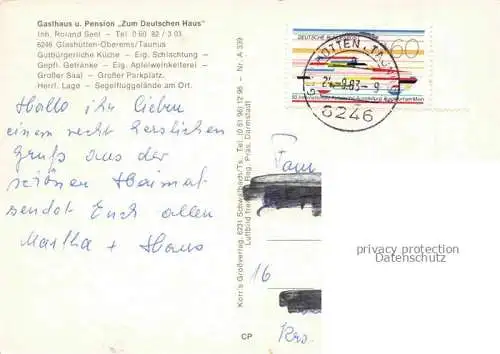 Gasthaus u. Pension „Zum Deutschen Haus"
Inh. Roland Seel - Tel. 0 60 82 / 3 03
6246 Glashütten-Oberems/Taunus
Gutbürgerliche Küche — Eig. Schlachtung —
Gepfl. Getränke — Eig. Apfelweinkelterei —
Großer Saal — Großer Parkplatz.
Herrl. Lage — Segelfluggelände am Ort.
Hallo ihr lieben
einen recht herzlichen
Gruß aus der
schönen Heimat
sendet Euch allen
Martha + Hans
Korr's Großverlag, 6231 Schwalbach/Ts., Tel. (0 61 96) 12 96 - Nr. A 339
Luftbild Reg. Präs. Darmstadt
CP
DEUTSCHE BUNDESPOST
60
GLASHÜTTEN, TAUNUS
.9.83-9
6246
Fam
16
Krs.
privacy protection
AnsichtskartenHandel.de